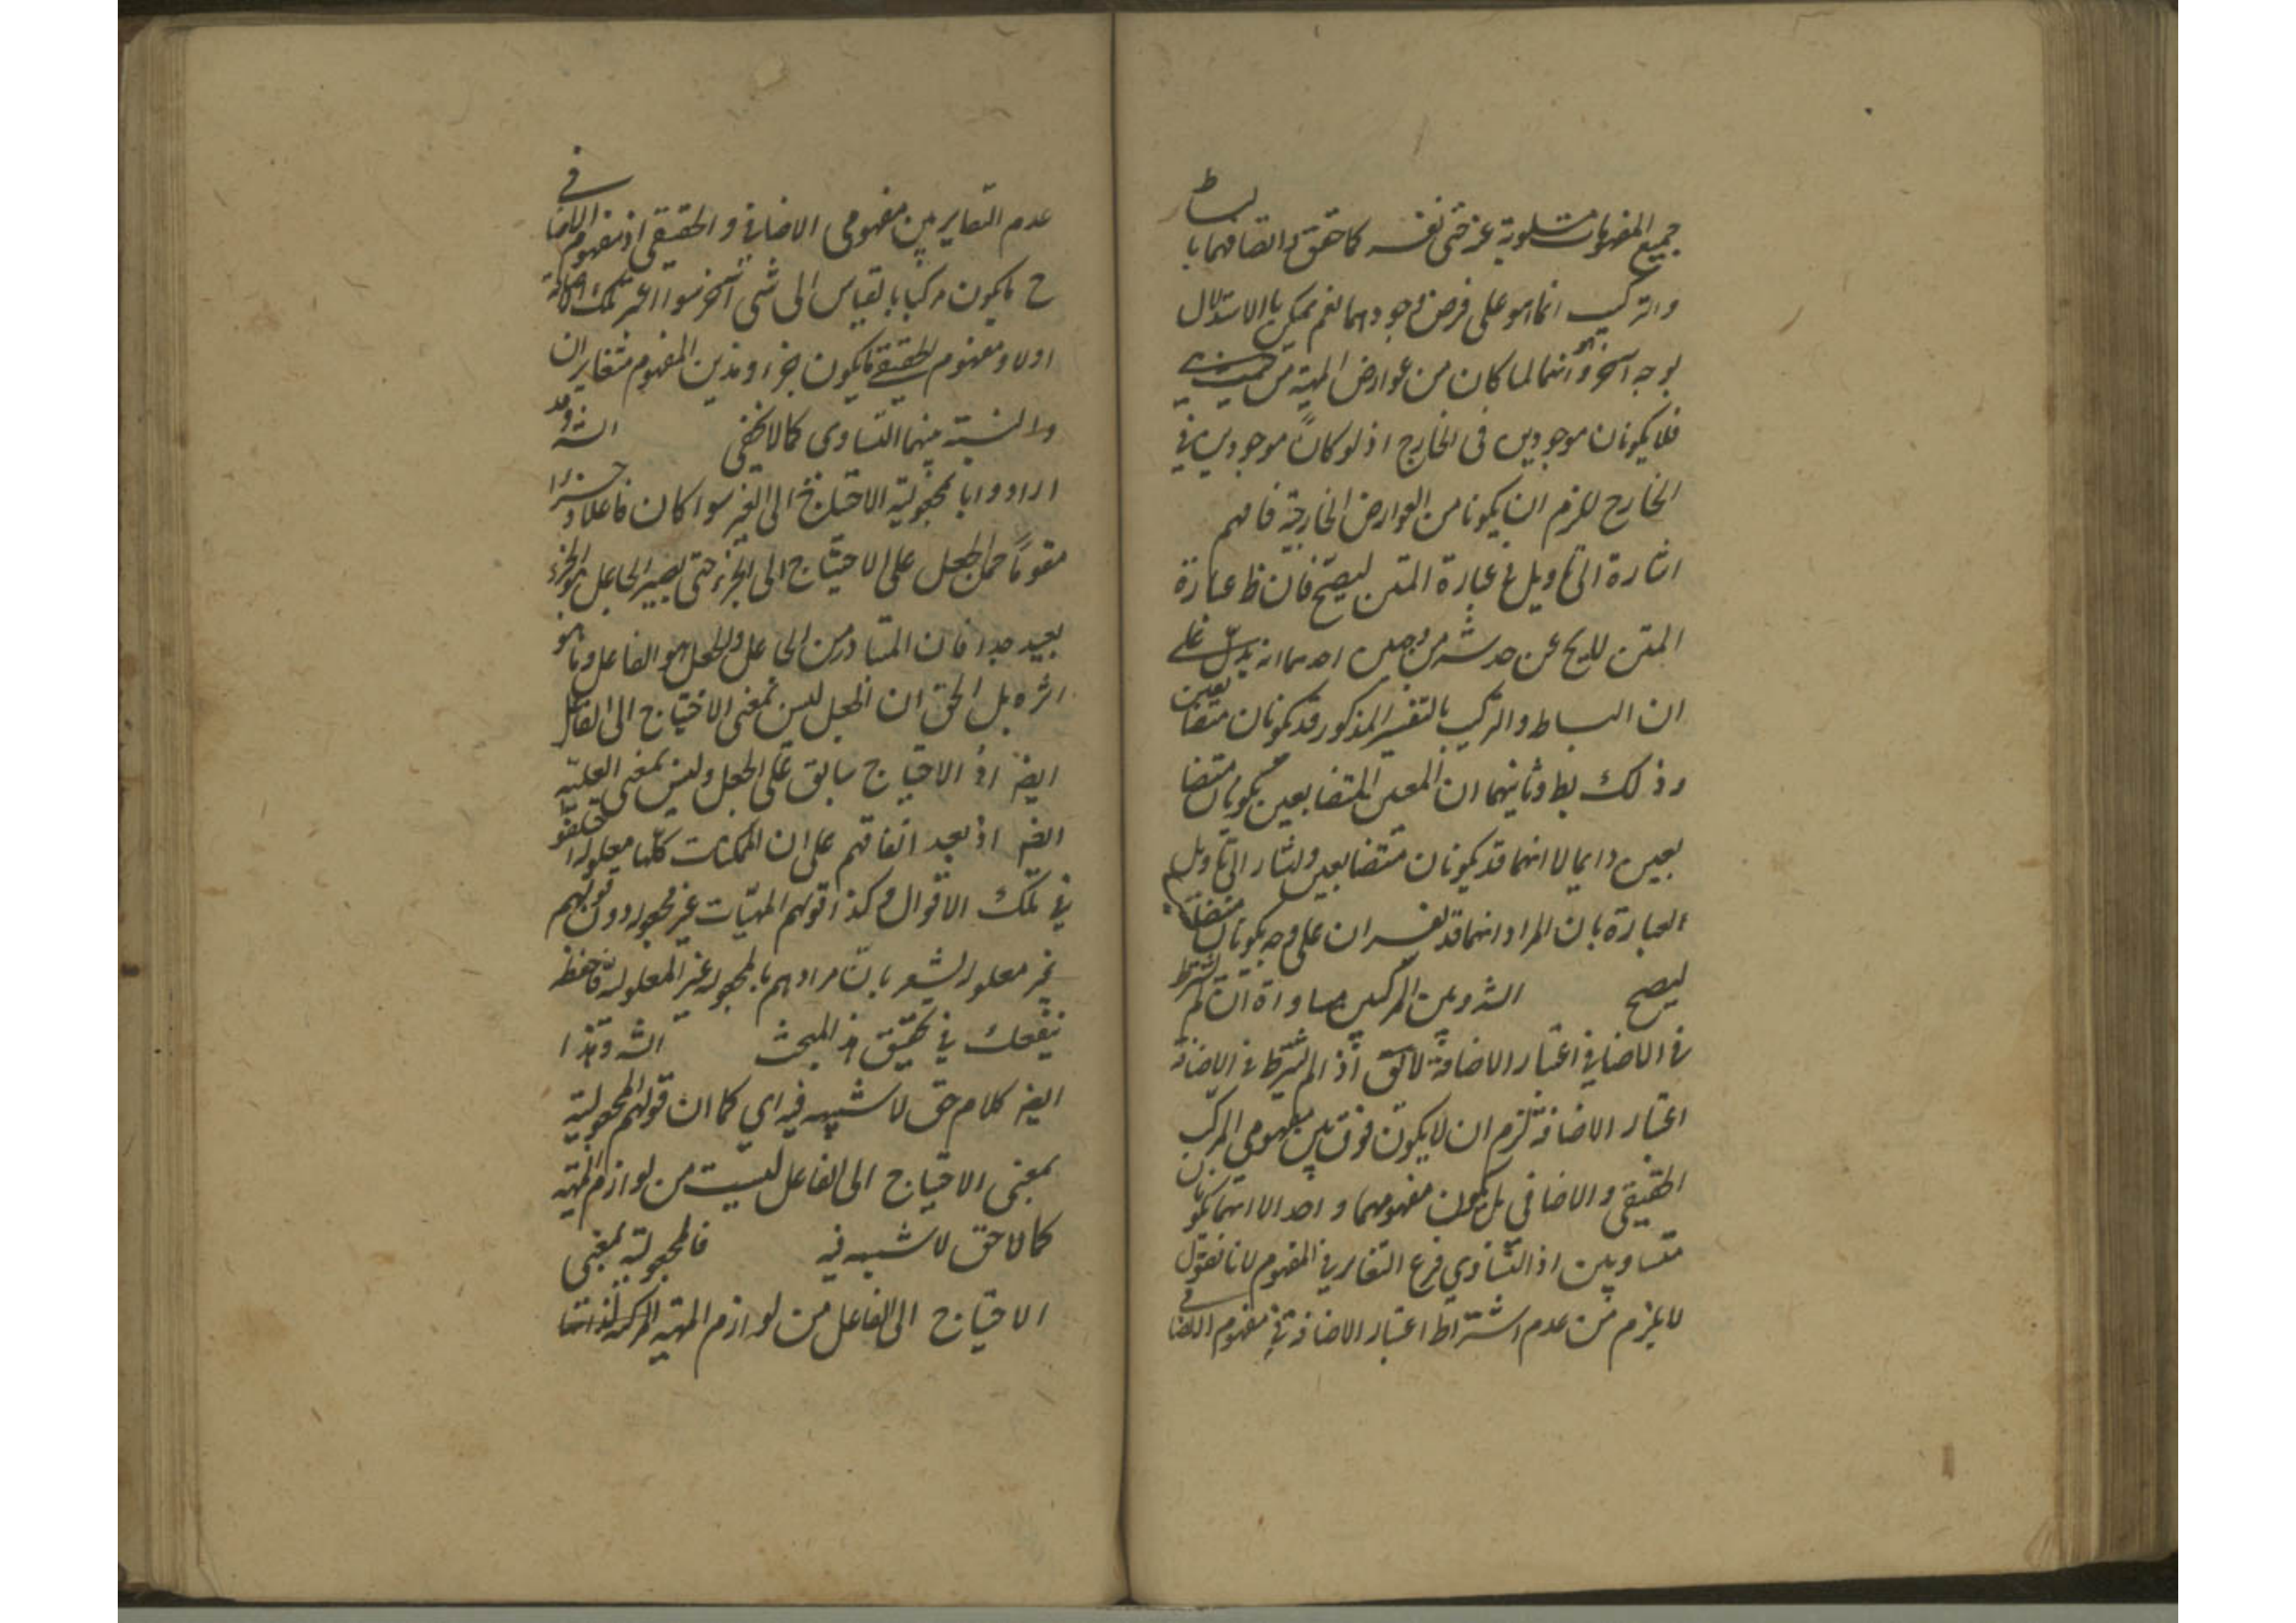 جميع المفهومات مسلوبة عن حتى نفسه كما حقق في اتصافهما بالبساطة
والتركيب انما هو على فرض وجودهما نعم يمكن بالاستدلال
بوجه آخر وهو انهما لما كان من عوارض المهية من حيث هي
فلا يكونان موجودين فى الخارج اذ لو كانا موجودين في
الخارج للزم ان يكونا من العوارض الخارجية فافهم
اشارة الى تاويل في عبارة المتن ليصح فان ظ عبارة
المتن لا يخ عن خدشه من وجهين احدهما انه يدل على
ان البساطة والتركيب بالتفسير المذكور قد يكونان متضايفين
وذلك بط وثانيهما ان المعنيين المتضايفين يكونان متضا
يفين دايما لا انهما قد يكونان متضايفين واشار الى تاويل
العبارة بان المراد انهما قد يفسران على وجه يكونان متضايفين
ليصح الشه وبين المركبين مساواة ان لم يشترط
في الاضافي اعتبار الاضافة لا يق اذا لم يشترط في الاضافي
اعتبار الاضافة لزم ان لا يكون فرق بين مفهومي المركب
الحقيقي والاضافي بل يكون مفهومهما واحد الا انهما يكونان
متساويين اذ التساوي فرع التغاير في المفهوم لانا نقول
لا يلزم من عدم اشتراط اعتبار الاضافة في مفهوم الاضافي
عدم التغاير بين مفهومى الاضافي والحقيقي اذ مفهوم الاضافي
ح ما يكون مركبا بالقياس الى شى آخر سواء اعتبر تلك الاضافة
اولا ومفهوم الحقيقي ما يكون جزء وهذين المفهوم متغايران
والنسبة بينهما التساوى كما لا يخفى الشه وقد
ارادوا بالمجعولية الاحتياج الى الغير سواء كان فاعلا او جزءا
مقوما حمل الجعل على الاحتياج الى الجزء حتى يصير الجاعل هو الجزء
بعيد جدا فان المتبادر من الجاعل والجعل هو الفاعل وما هو
اثره بل الحق ان الجعل ليس بمعنى الاحتياج الى الفاعل
ايضا اذ الاحتياج سابق على الجعل وليس بمعنى العلية
ايضا اذ بعد اتفاقهم على ان الممكنات كلها معلولة اختلفوا
في تلك الاقوال وكذا قولهم المهيات غير مجعولة دون قولهم
غير معلولة يشعر بان مرادهم بالمجعولة غير المعلولة فاحفظ
ينفعك في تحقيق هذا المبحث الشه وهذا
ايضا كلام حق لا شبهه فيه اي كما ان قولهم المجعولية
بمعنى الاحتياج الى الفاعل ليست من لوازم المهية
كلام حق لا شبهه فيه فالمجعولية بمعنى
الاحتياج الى الفاعل من لوازم المهية المركبة لذاتها